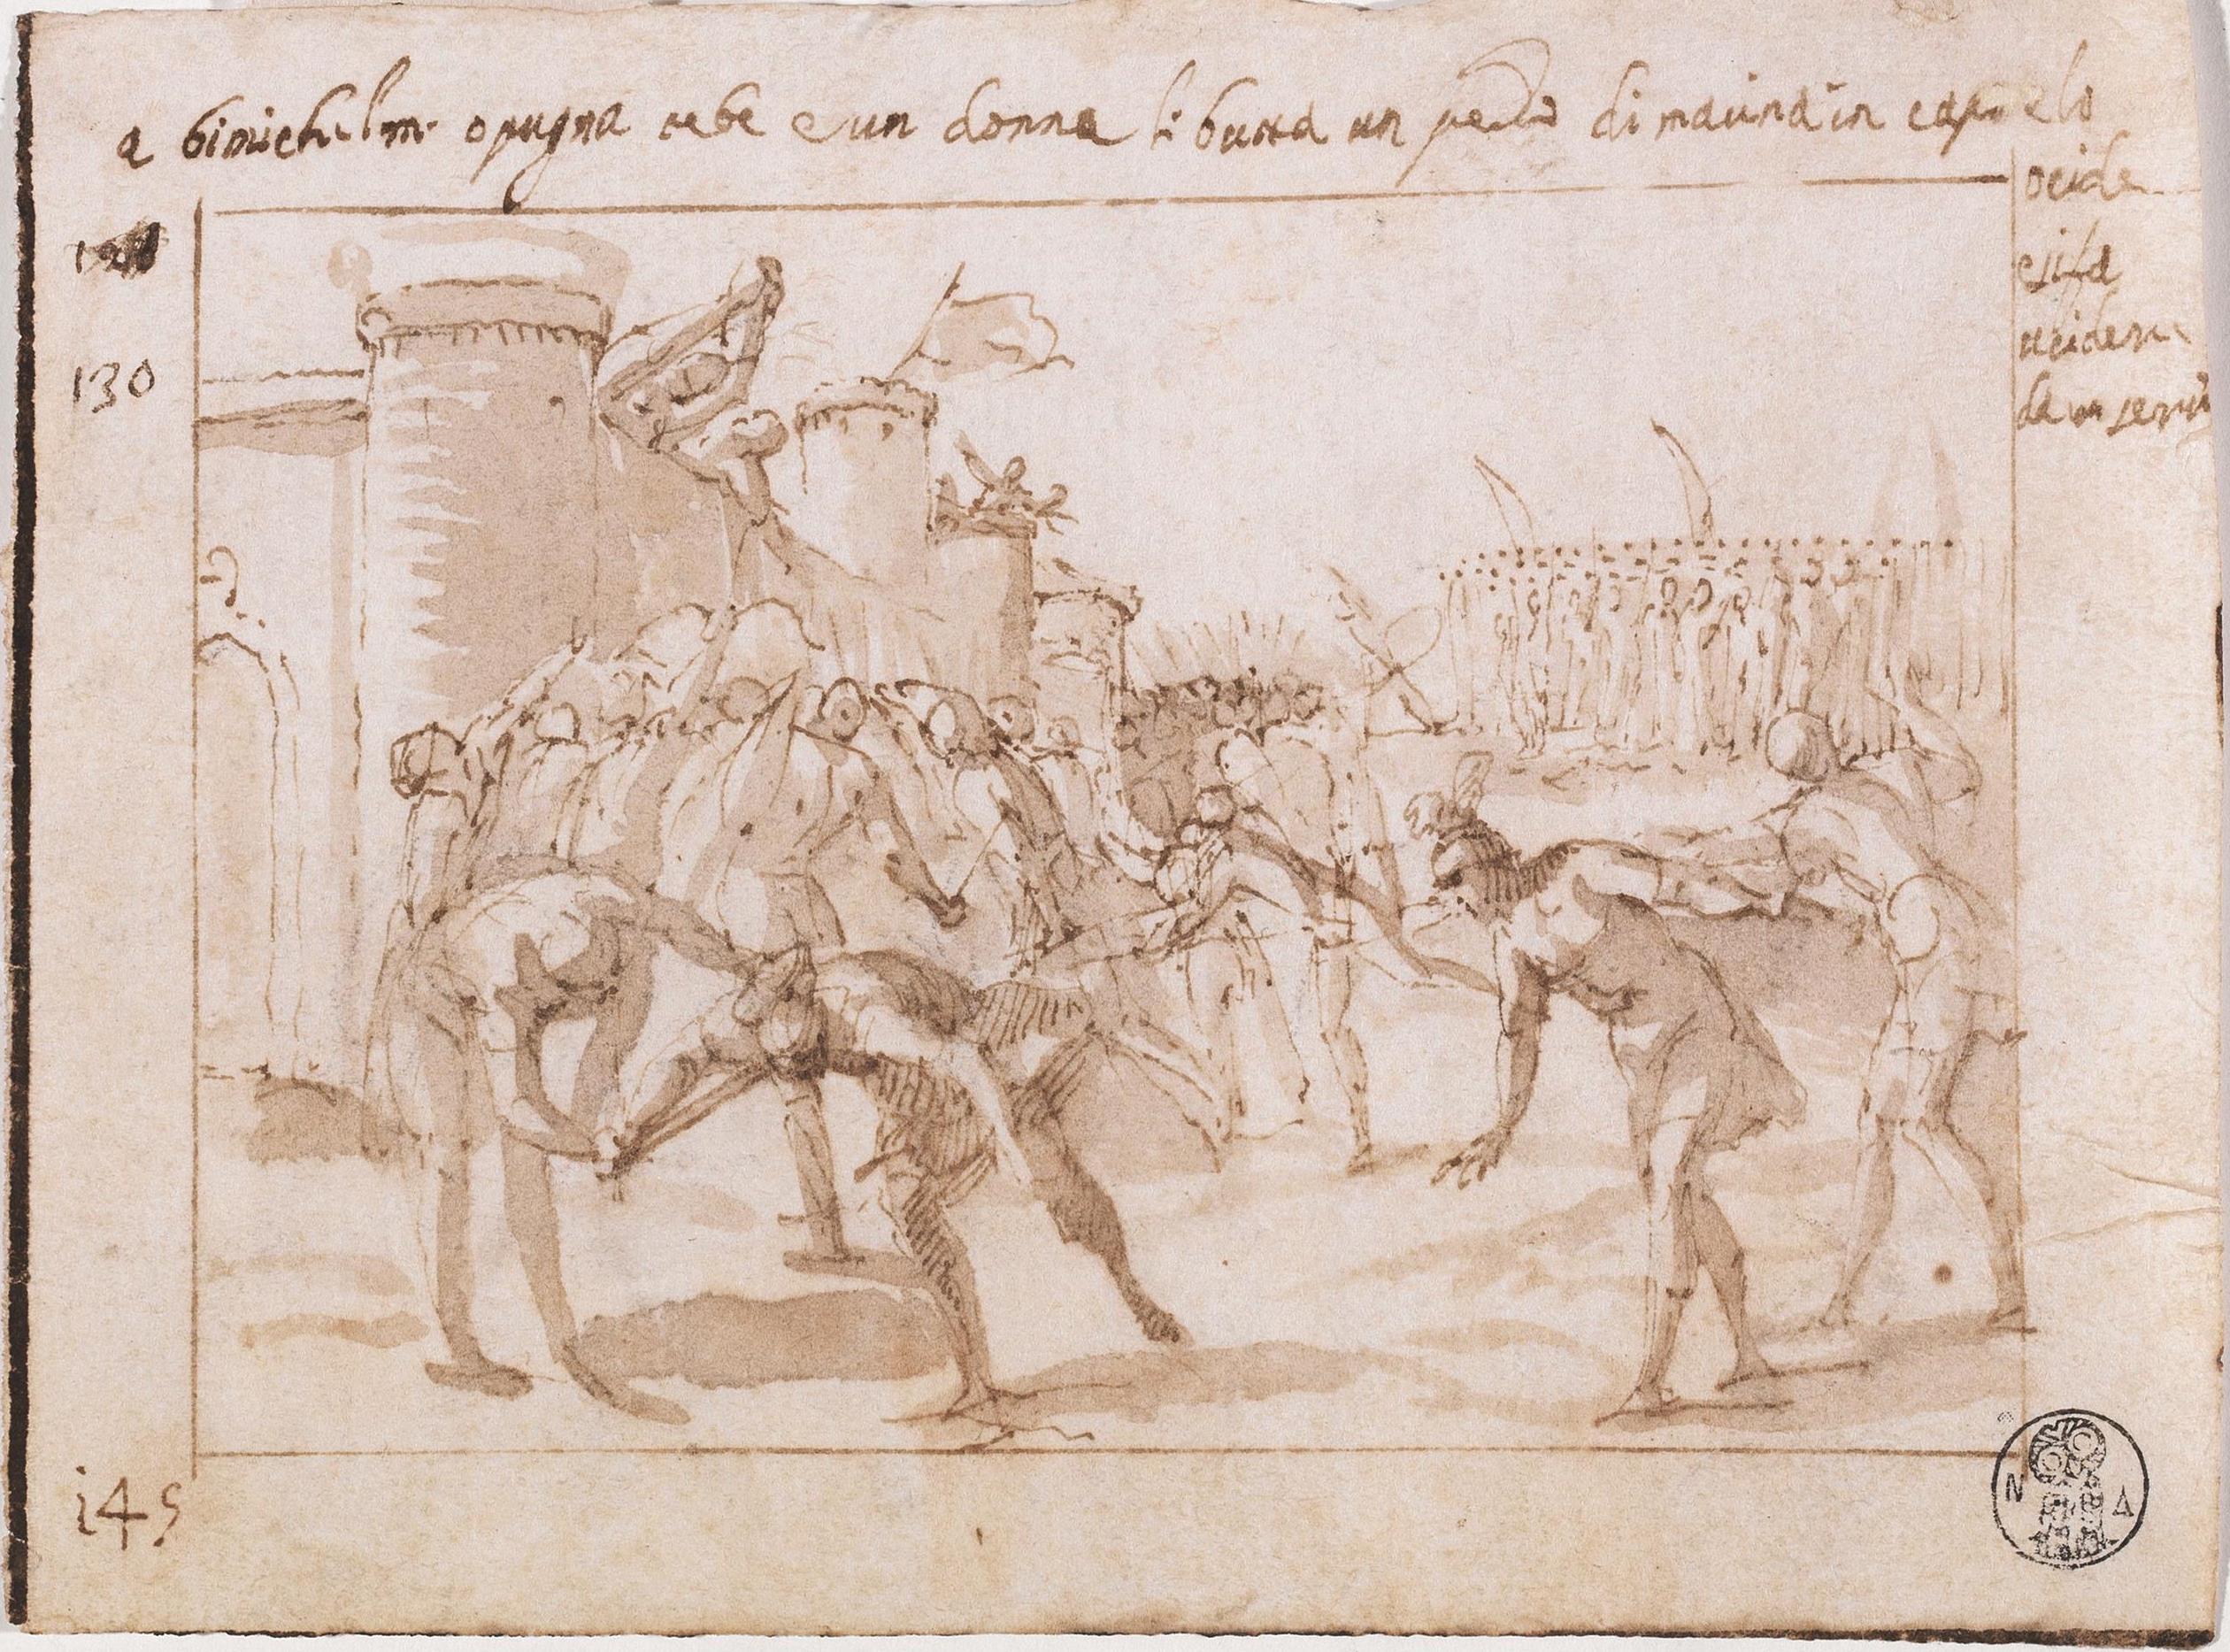 a bimichelm opugna tebe e un donna li butta un pezzo di macina in capo e lo
ocide
e si fa
ucidere
da un servi
121
130
145
N A